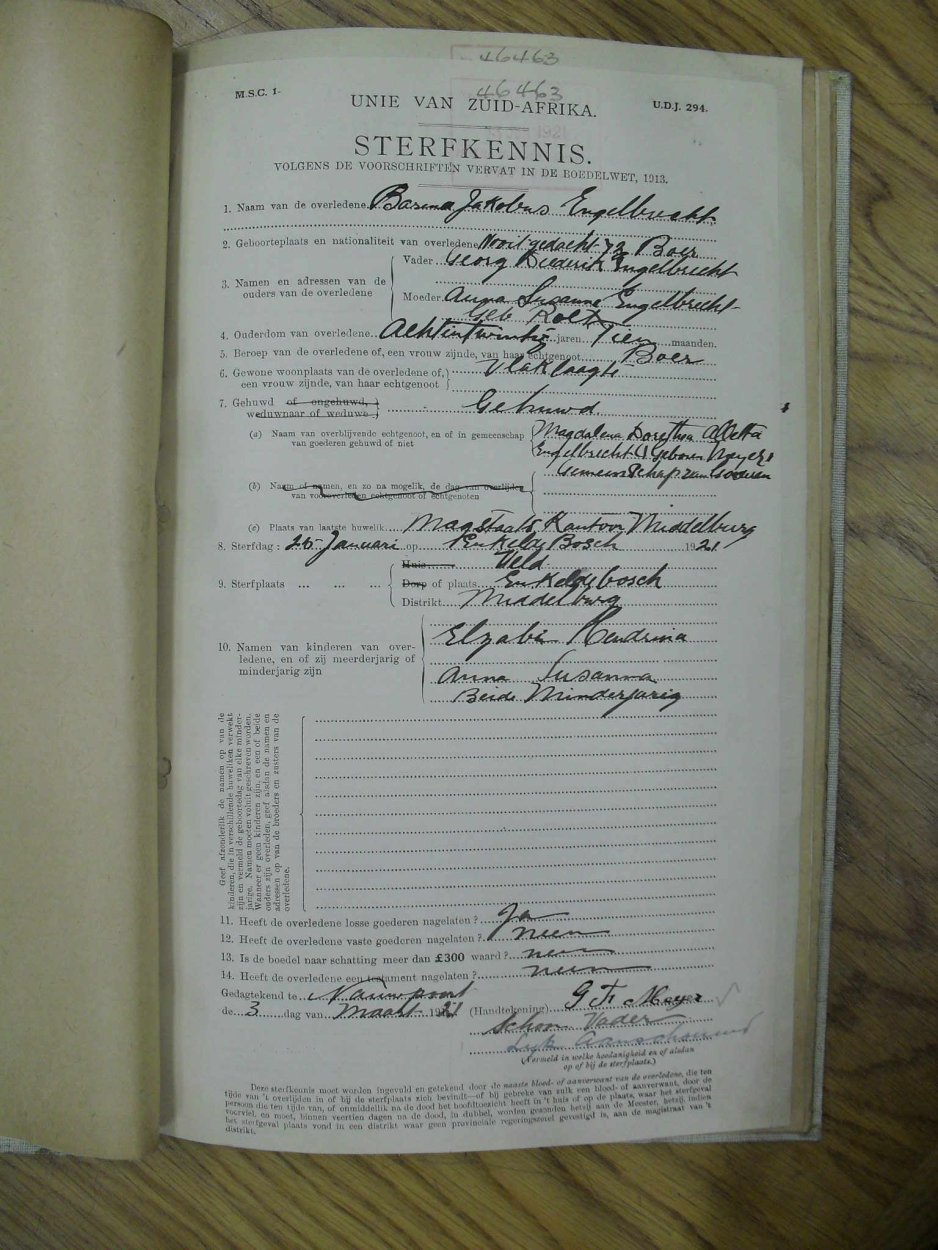 46463
M.S.C. 1-
46463
UNIE VAN ZUID-AFRIKA.
U.D.J. 294.
1921
STERFKENNIS.
VOLGENS DE VOORSCHRIFTEN VERVAT IN DE BOEDELWET, 1913.
1. Naam van de overledene Jakobus Engelbrecht
2. Geboorteplaats en nationaliteit van overledene Nooitgedacht 72 Boer
3. Namen en adressen van de ouders van de overledene
Vader Georg Diederik Engelbrecht
Moeder Anna Susanna Engelbrecht
Geb
4. Ouderdom van overledene Achtentwintig jaren Tien maanden.
5. Beroep van de overledene of, een vrouw zijnde, van haar echtgenoot Boer
6. Gewone woonplaats van de overledene of, een vrouw zijnde, van haar echtgenoot Vlaklaagte
7. Gehuwd of ongehuwd, weduwnaar of weduwe Gehuwd
(a) Naam van overblijvende echtgenoot, en of in gemeenschap van goederen gehuwd of niet
Magdalena Dorethea Alletta
Engelbrecht (Geboren Meyer)
Gemeenschap van Goederen
(b) Naam of namen, en zo na mogelik, de dag van overlijden van vooroverleden echtgenoot of echtgenoten
(c) Plaats van laatste huwelik Kantoor Middelburg
8. Sterfdag : 26 Januari op Bosch 1921
9. Sterfplaats ... ... ...
Huis Veld
Dorp of plaats Enkeldebosch
Distrikt Middelburg
10. Namen van kinderen van overledene, en of zij meerderjarig of minderjarig zijn
Elzabé Hendrina
Anna Susanna
Beide Minderjarig
Geef afzonderlik de namen op van de
kinderen, die in verschillende huweliken verwekt
zijn en vermeld de geboortedag van elke minder-
jarige. Namen moeten voluit geschreven worden.
Wanneer er geen kinderen zijn en een of beide
ouders zijn overleden, geef alsdan de namen en
adressen op van de broeders en zusters van de
overledene.
11. Heeft de overledene losse goederen nagelaten ? Ja
12. Heeft de overledene vaste goederen nagelaten ? neen
13. Is de boedel naar schatting meer dan £300 waard ? neen
14. Heeft de overledene een testament nagelaten ? neen
Gedagtekend te Nauwpoort
de 3 dag van Maart 1921
(Handtekening) Meyer
Schoon Vader
Lyk
(Vermeld in welke hoedanigheid en of aldan
op of bij de sterfplaats.)
Deze sterfkennis moet worden ingevuld en getekend door de naaste bloed- of aanverwant van de overledene, die ten
tijde van 't overlijden in of bij de sterfplaats zich bevindt—of bij gebreke van zulk een bloed- of aanverwant, door de
persoon die ten tijde van, of onmiddellik na de dood het hoofdtoezicht heeft in 't huis of op de plaats, waar het sterfgeval
voorviel, en moet, binnen veertien dagen na de dood, in dubbel, worden gezonden hetzij aan de Meester, hetzij, indien
het sterfgeval plaats vond in een distrikt waar geen provinciale regeringszetel gevestigd is, aan de magistraat van 't
distrikt.